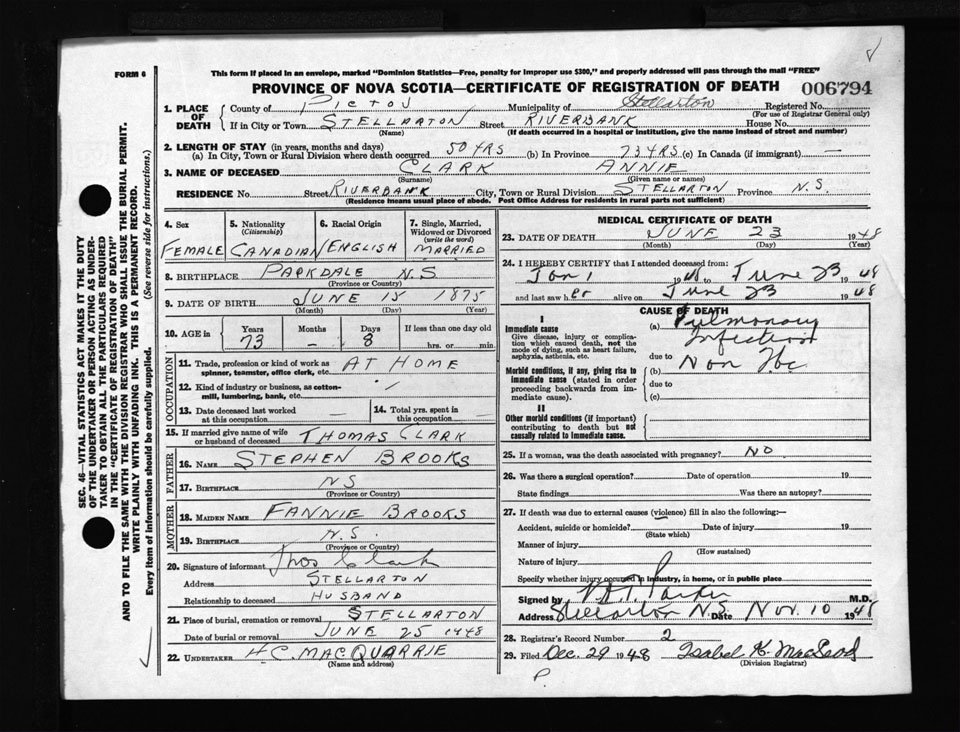 FORM 6
This form if placed in an envelope, marked "Dominion Statistics—Free, penalty for improper use $300," and properly addressed will pass through the mail "FREE"
PROVINCE OF NOVA SCOTIA—CERTIFICATE OF REGISTRATION OF DEATH 006794
1. PLACE OF DEATH County of PICTOU Municipality of Stellarton Registered No.
(For use of Registrar General only)
If in City or Town STELLARTON Street RIVERBANK House No.
(Name) (If death occurred in a hospital or institution, give the name instead of street and number)
2. LENGTH OF STAY (in years, months and days)
(a) In City, Town or Rural Division where death occurred 50 YRS (b) In Province 73 YRS (c) In Canada (if immigrant) —
3. NAME OF DECEASED CLARK ANNIE
(Surname) (Given name or names)
RESIDENCE No. Street RIVERBANK City, Town or Rural Division STELLARTON Province N.S.
(Residence means usual place of abode. Post Office Address for residents in rural parts not sufficient)
4. Sex FEMALE
5. Nationality (Citizenship) CANADIAN
6. Racial Origin ENGLISH
7. Single, Married, Widowed or Divorced (write the word) MARRIED
8. BIRTHPLACE PARKDALE N.S
(Province or Country)
9. DATE OF BIRTH JUNE 15 1875
(Month) (Day) (Year)
10. AGE in Years Months Days If less than one day old
73 – 8 hrs. or min.
OCCUPATION
11. Trade, profession or kind of work as spinner, teamster, office clerk, etc. AT HOME
12. Kind of industry or business, as cotton-mill, lumbering, bank, etc.
13. Date deceased last worked at this occupation —
14. Total yrs. spent in this occupation —
15. If married give name of wife or husband of deceased THOMAS CLARK
FATHER
16. NAME STEPHEN BROOKS
17. BIRTHPLACE NS
(Province or Country)
MOTHER
18. MAIDEN NAME FANNIE BROOKS
19. BIRTHPLACE N.S.
(Province or Country)
20. Signature of informant Thos Clark
Address STELLARTON
Relationship to deceased HUSBAND
21. Place of burial, cremation or removal STELLARTON
Date of burial or removal JUNE 25 1948
22. UNDERTAKER H.C. MACQUARRIE
(Name and address)
MEDICAL CERTIFICATE OF DEATH
23. DATE OF DEATH JUNE 23 1948
(Month) (Day) (Year)
24. I HEREBY CERTIFY that I attended deceased from:
Jan 1 1948 to June 23 1948
and last saw her alive on June 23 1948
CAUSE OF DEATH
I
Immediate cause
Give disease, injury or complication which caused death, not the mode of dying, such as heart failure, asphyxia, asthenia, etc.
(a) Pulmonary Infection
due to
Morbid conditions, if any, giving rise to immediate cause (stated in order proceeding backwards from immediate cause).
(b) Non Tbc
due to
(c)
II
Other morbid conditions (if important) contributing to death but not causally related to immediate cause.
25. If a woman, was the death associated with pregnancy? NO
26. Was there a surgical operation? Date of operation 19
State findings Was there an autopsy?
27. If death was due to external causes (violence) fill in also the following:—
Accident, suicide or homicide? Date of injury 19
(State which)
Manner of injury
(How sustained)
Nature of injury
Specify whether injury occurred in industry, in home, or in public place
Signed by Parker M.D.
Address Stellarton N.S. Date Nov. 10 1948
28. Registrar's Record Number 2
29. Filed Dec. 29 1948 Isabel K. MacLeod
(Division Registrar)
P
SEC. 46—VITAL STATISTICS ACT MAKES IT THE DUTY
OF THE UNDERTAKER OR PERSON ACTING AS UNDER-
TAKER TO OBTAIN ALL THE PARTICULARS REQUIRED
IN THE "CERTIFICATE OF REGISTRATION OF DEATH"
AND TO FILE THE SAME WITH THE DIVISION REGISTRAR WHO SHALL ISSUE THE BURIAL PERMIT.
WRITE PLAINLY WITH UNFADING INK. THIS IS A PERMANENT RECORD.
Every item of information should be carefully supplied. (See reverse side for instructions.)